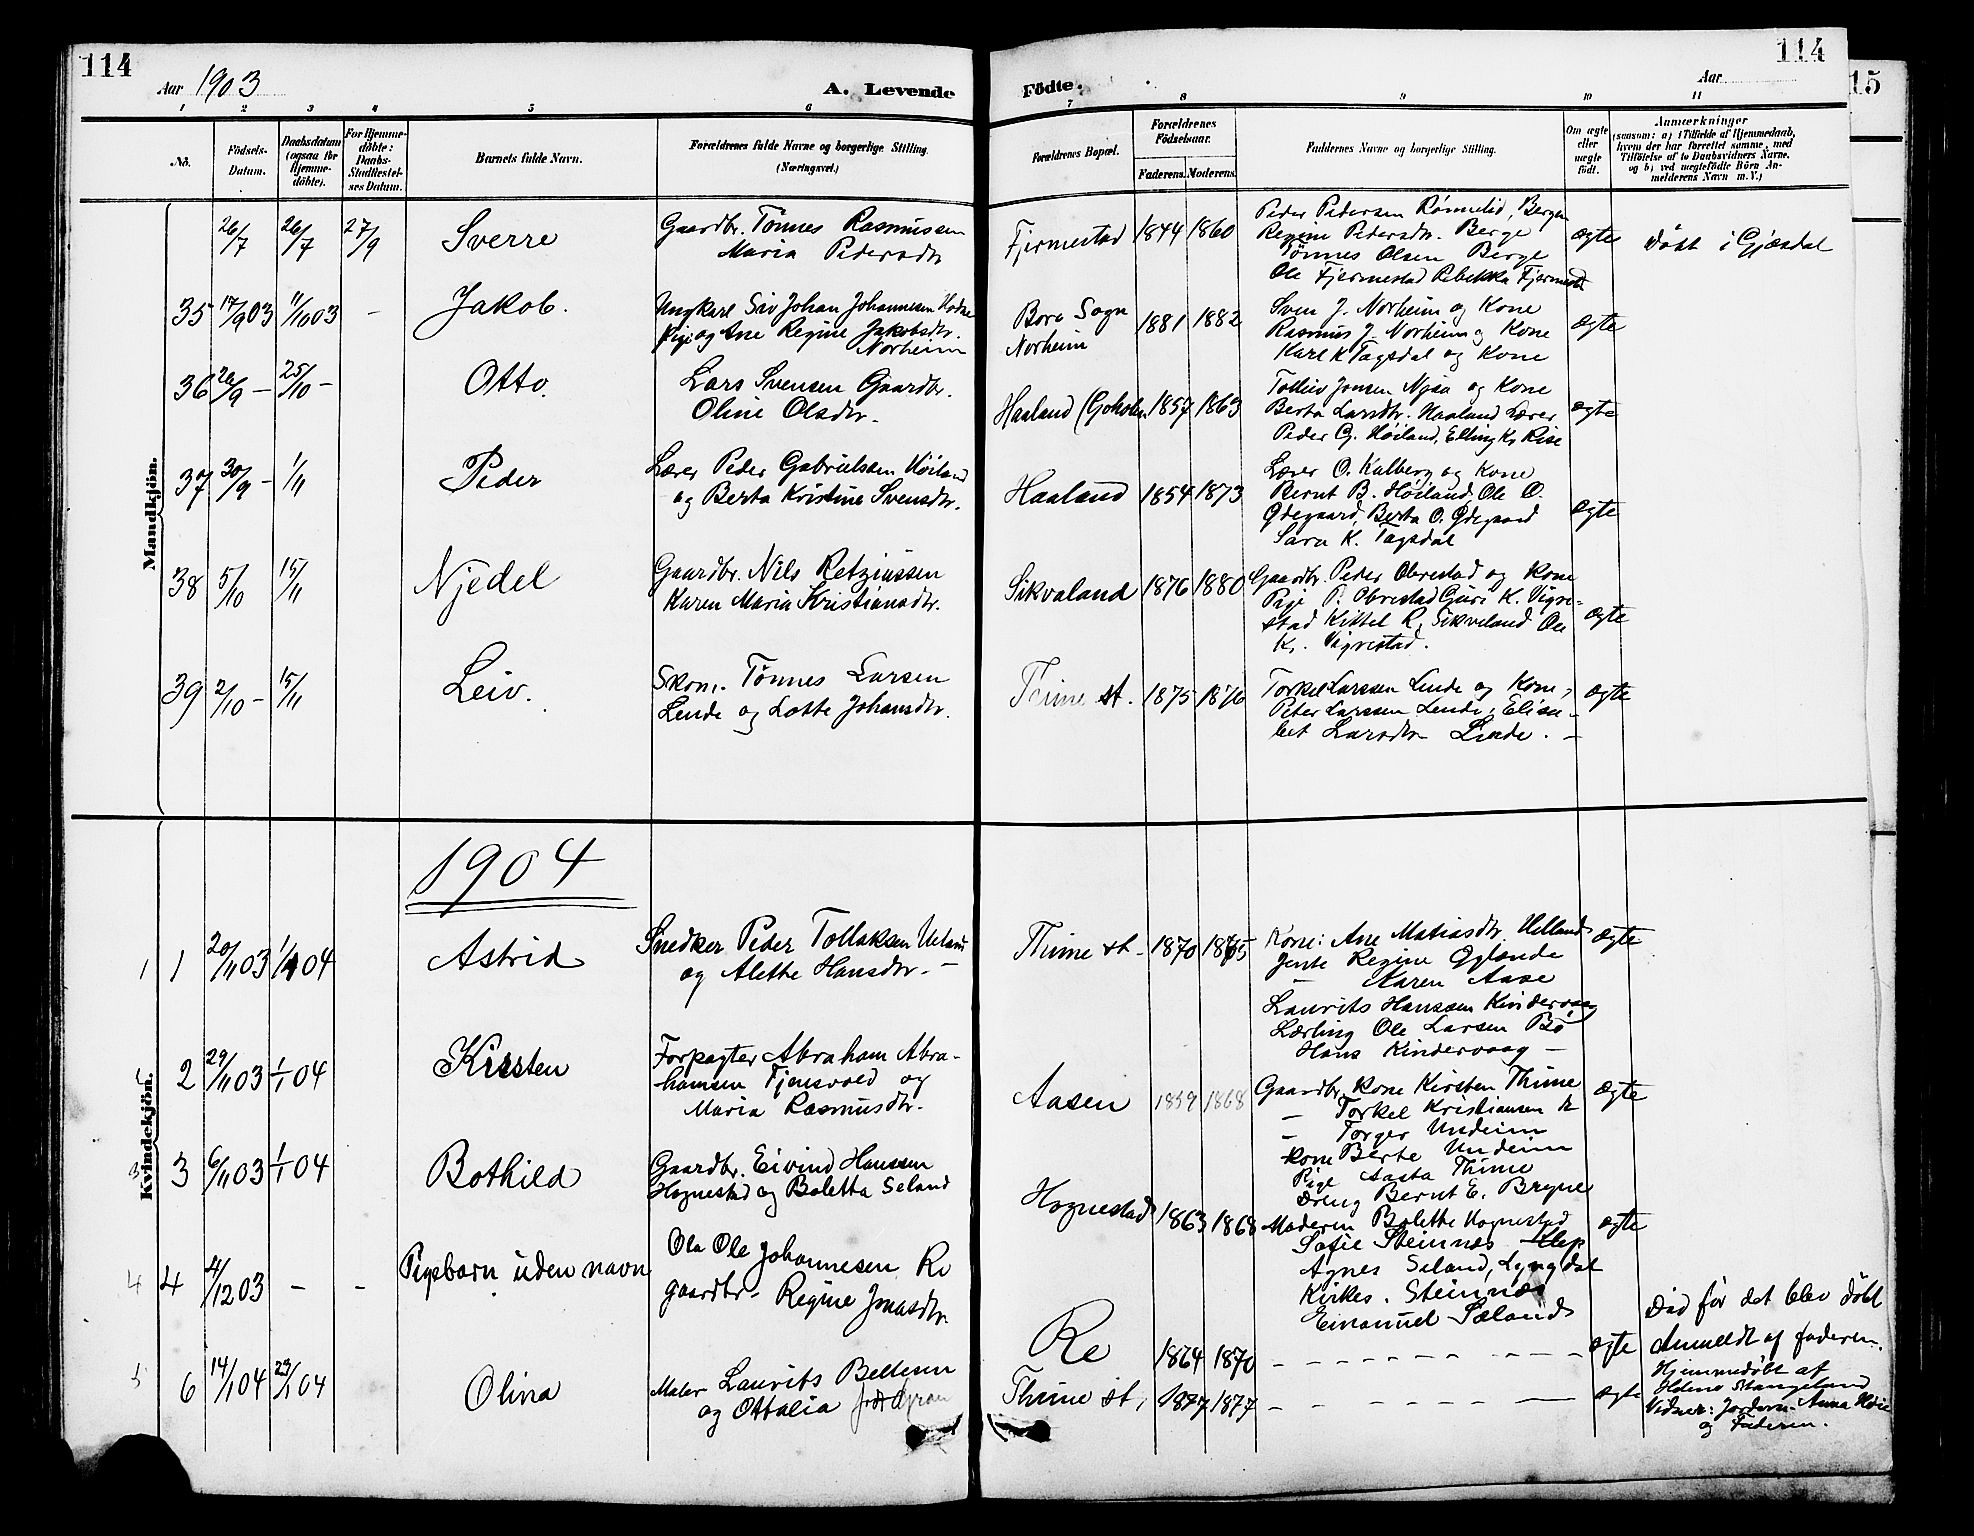 114
Aar 1903
A. Levende
Födte.
Aar
114
15
1 2 3 4 5 6 7 8 9 10 11
No.
Födsels-
Datum.
Daabsdatum
(ogsaa for
Hjemme-
döbte).
For Hjemme-
döbte:
Daabs-
Stadfæstel-
ses Datum.
Barnets fulde Navn.
Forældrenes fulde Navne og borgerlige Stilling.
(Næringsvei.)
Forældrenes Bopæl.
Forældrenes
Födselsaar.
Faderens. Moderens.
Faddernes Navne og borgerlige Stilling.
Om ægte
eller
uægte
født.
Anmærkninger
(saasom: a) i Tilfælde af Hjemmedaab,
hvem der har forrettet samme, med
Tilföielse af to Daabsvidners Navne.
og b) ved uægtefödte Börn An-
melderens Navn m. V.)
Mandkjön.
26/7 26/7 27/9 Sverre
Gaardbr. Tønnes Rasmussen
Maria Pedersdtr
Fjermestad 1844 1860
Peder Pedersen Rømmelid, Bergen
Regine Pedersdtr. Berge
Tønnes Olsen Berge
Ole Fjermestad Rebekka Fjermestad
ægte
døbt i Gjæsdal
35 17/9 03 11/10 03 - Jakob.
Ungkarl Siv Johan Johannesen
Pige og Ane Regine Jakobsdtr.
Norheim
Bore Sogn
Norheim
1881 1882
Sven J. Norheim og Kone
Rasmus J. Norheim og Kone
Karl K Tagsdal og Kone
ægte
36 26/9 - 25/10 - Otto.
Lars Svensen Gaardbr.
Oline Olsdtr.
Haaland 1857 1863
Jonsen og Kone
Berta Larsdtr. Haaland Lærer
Peder G. Høiland, Elling K. Rise
ægte
37 30/9 - 1/11 Peder
Lærer Peder Gabrielsen Høiland
og Berta Kristine Svensdtr.
Haaland 1854 1873
Lærer O. Kalberg og Kone
Bernt B. Høiland, Ole O.
Ødegaard, Berta O. Ødegaard
Sara K. Tagsdal
ægte
38 5/10 15/11 Njedel
Gaardbr. Nils Retziussen
Karen Maria Kristiansdtr.
Sikvaland 1876 1880
Gaardbr. Peder Obrestad og Kone
Pige P. Obrestad Guri K. Vigre-
stad Kittel R. Sikveland Ole
K. Vigrestad.
ægte
39 2/10 - 15/11 Leiv.
Skom. Tønnes Larsen
Lende og Lotte Johansdtr.
Thime st. 1875 1876
Torkel Larssen Lende og Kone,
Peter Larssen Lende, Elisa-
bet Larsdtr Lende. -
ægte
1904
Kvindekjön.
1 1 20/11 03 1/1 04 Astrid
Snedker Peder Tollaksen
og Alethe Hansdtr. -
Thime st. 1870 1865
Kone: Ane Matiasdtr Helland
Jente Regine Øglænde
- Karen Aase
Laurits Hanssen Kindervaag
Lærling Ole Larsen Bø
Hans Kindervaag -
ægte
2 29/11 03 1/1 04 Kirsten
Forpagter Abraham Abra-
hamsen Tjensvold og
Maria Rasmusdtr.
Aasen 1859 1868
Gaardbr. kone Kirsten Thime
- Torkel Kristiansen
- Torger Undeim
Kone Berte Undeim
Pige Aasta Thime
Dreng Bernt E. Bryne
ægte
3 3 6/11 03 1/1 04 Bothild
Gaardbr. Eivind Hanssen
Hognestad og Boletta Seland
Hognestad 1863 1868
Moderen Bolette Hognestad
Sofie Steinnes Klep
Agnes Seland, Lyngdal
Kirkes. Steinnes
Emanuel Sæland
ægte
4 4 4/12 03 - - Pigebarn uden navn
Ole Johannesen Re
gaardbr. Regine Jonasdtr.
Re 1864 1870
ægte
Død før det blev døbt
Anmeldt af faderen.
5 6 14/1 04 23/1 04 Olina
Maler Laurits Bellesen
og Ottalia født
Thime st, 1877 1877
ægte
Hjemmedøbt af
Helene Stangeland
Vidner: Jorderm. Anna Høie
og Faderen.